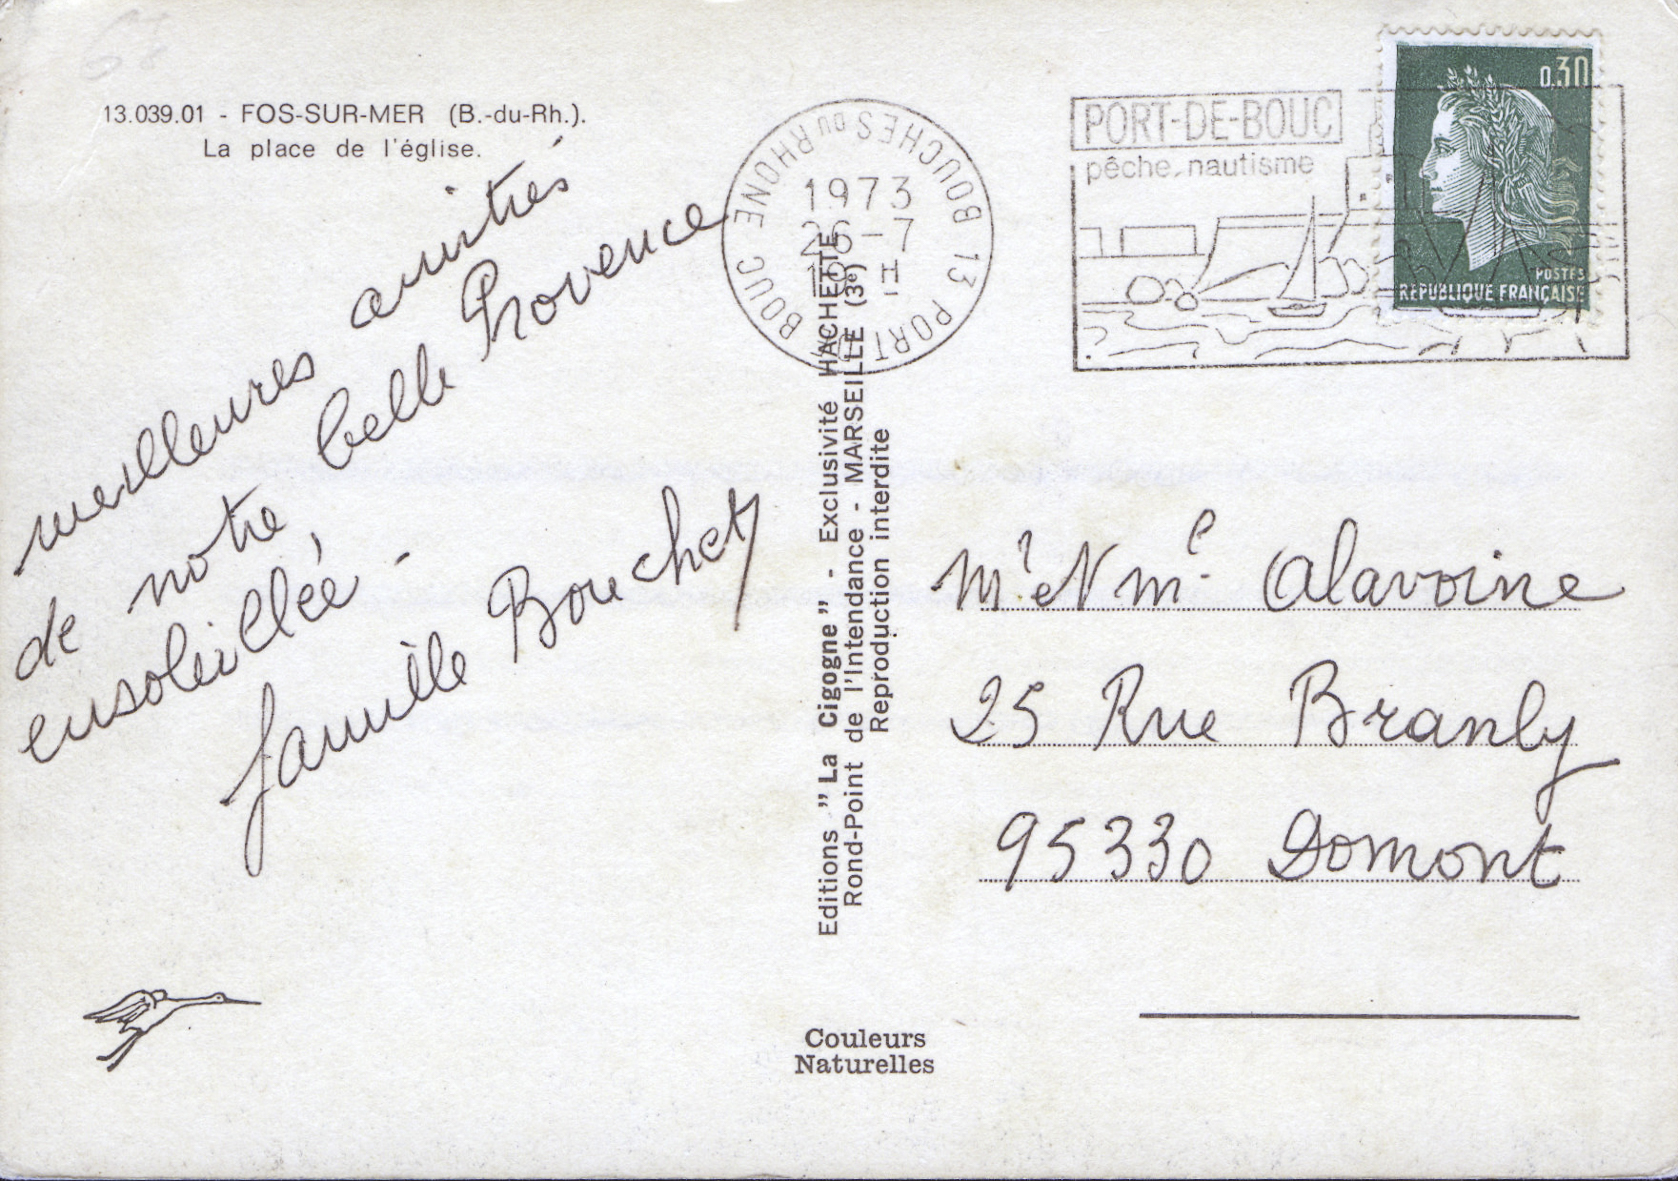 68
13.039.01 - FOS-SUR-MER (B.-du-Rh.).
La place de l'église.
meilleures amitiés
de notre belle Provence
ensoleillée -
famille Bouchet
BOUCHES DU RHONE
13 PORT DE BOUC
1973
26-7
18 H
PORT-DE-BOUC
pêche, nautisme
0,30
POSTES
REPUBLIQUE FRANÇAISE
Editions "La Cigogne" - Exclusivité HACHETTE
Rond-Point de l'Intendance - MARSEILLE (3e)
Reproduction interdite
Mr et Mme Alavoine
25 Rue Branly
95330 Domont
Couleurs
Naturelles